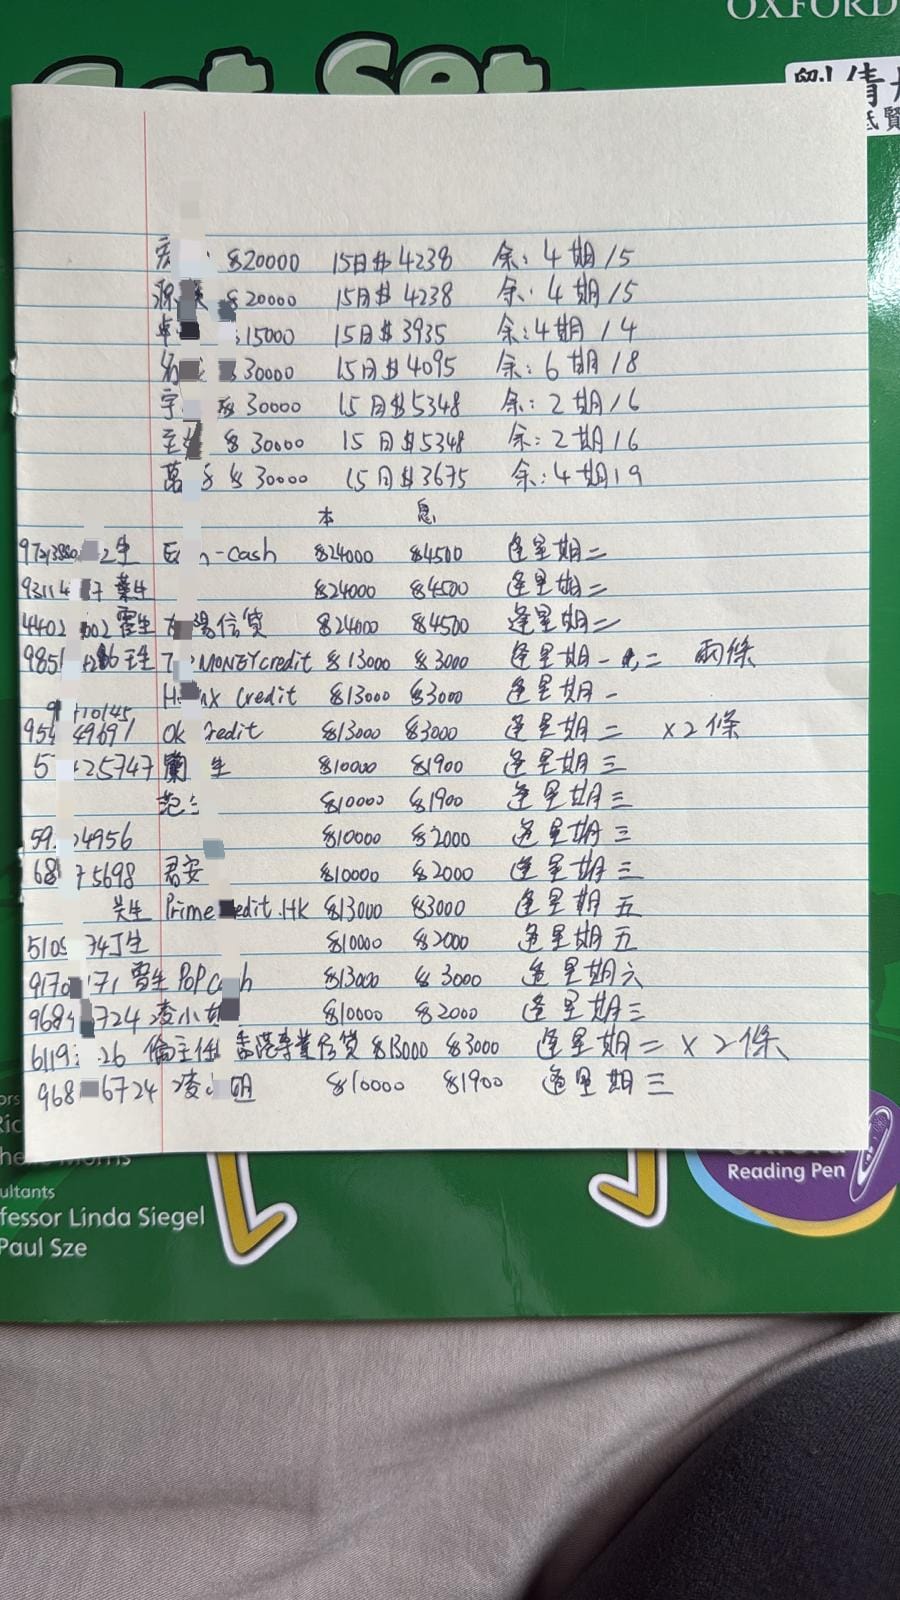 OXFORD
Get Set
劉倩
氏賢
$20000 15日$4238 余:4期/5
$20000 15日$4238 余:4期/5
卓 $15000 15日$3935 余:4期/4
名 $30000 15日$4095 余:6期/8
宇 $30000 15日$5348 余:2期/6
$30000 15日$5348 余:2期/6
萬 $30000 15日$3675 余:4期/9
本 息
生 -cash $24000 $4500 逢星期二
93114 7 葉生 $24000 $4500 逢星期二
4402 602 霍生 信貸 $24000 $4500 逢星期二
985 6 王生 MONEY credit $13000 $3000 逢星期一,二 兩條
H X Credit $13000 $3000 逢星期一
10145
954 49691 OK redit $13000 $3000 逢星期二 x2條
5 25747 蘭 生 $10000 $1900 逢星期三
范 $10000 $1900 逢星期三
59 4956 $10000 $2000 逢星期三
68 75698 君安 $10000 $2000 逢星期三
Prime edit.HK $13000 $3000 逢星期五
510 74丁生 $10000 $2000 逢星期五
9170 171 雷生 Pop c sh $13000 $3000 逢星期六
968 724 凌小 $10000 $2000 逢星期三
6119 26 倫主任 香港專業信貸 $13000 $3000 逢星期二 x2條
968 6724 凌 姐 $10000 $1900 逢星期三
ors
Ric
Morris
ultants
fessor Linda Siegel
Paul Sze
Oxford
Reading Pen